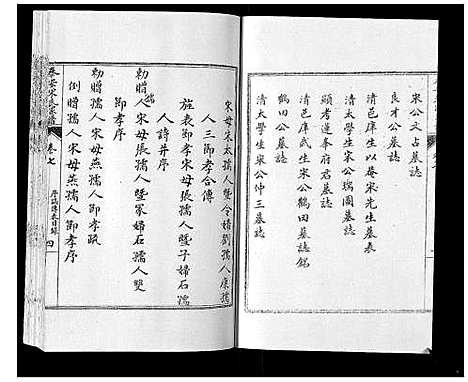 宋公文占墓誌
良才公墓誌
清邑庠生以菴宋先生墓表
清太學生宋公瑞圖墓誌
顯考蓬峯府君墓誌
清邑庠武生宋公鶴田墓誌銘
鶴田公墓誌
清太學生宋公仲三墓誌
宋母朱太孺人暨令婦劉孺人康孺
人三節孝合傳
旌表節孝宋母張孺人暨子婦石孺
人詩并序
勅贈孺人宋母張孺人暨冢婦石孺人雙
節孝序
勅贈孺人宋母燕孺人節孝疏
例贈孺人宋母燕孺人節孝序
泰安宋氏家譜
卷七
四